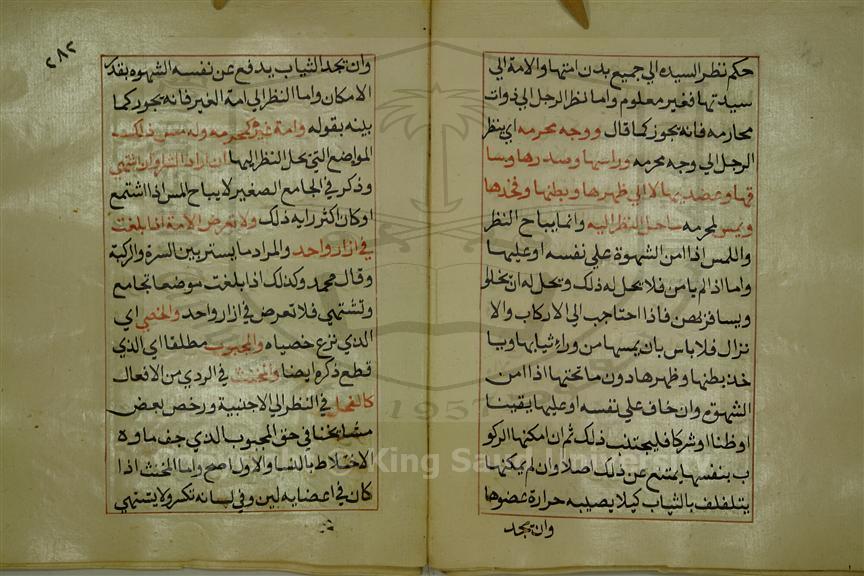 حكم نظر السيده الي جميع بدن امتها والامة الي
سيدتها فغير معلوم واما نظر الرجل الي ذوات
محارمه فانه يجوز كما قال ووجه محرمه اي ينظر
الرجل الي وجه محرمه وراسها وصدرها وسا
قها وعضديها لا الي ظهرها وبطنها وفخذها
ويمس لمحرمه ما حل النظر اليه وانما يباح النظر
واللمس اذا امن الشهوة علي نفسه او عليها
واما اذا لم يامن فلا يحل له ذلك ويحل له ان يخلو
ويسافر بهن فاذا احتاجب الي الاركاب والا
نزال فلا باس بان يمسها من وراء ثيابها ويا
خذ بطنها وظهرها دون ما تحتها اذا امن
الشهوة وان خاف علي نفسه او عليها يقينا
او ظنا او شركا فليجتنب ذلك ثم ان امكنها الركو
ب بنفسها يمتنع عن ذلك اصلا وان لم يمكنها
يتلفلف بالثياب كيلا يصيبه حرارة عضوها
وان يجد
٢٨٢
وان يجد الثياب يدفع عن نفسه الشهوه بقدر
الامكان واما النظر الي امة الغير فانه يجوز كما
بينه بقوله وامة غيره كمحرمه وله مس ذلك
المواضع التي يحل النظر اليها ان اراد الشراء وان اشتهي
وذكر في الجامع الصغير لا يباح المس اذا اشتمع
او كان اكثر رايه ذلك ولا تعرض الامة اذا بلغت
في ازار واحد والمراد ما يستر بين السرة والركبة
وقال محمد وكذلك اذا بلغت موضعا تجامع
وتشتهي فلا تعرض في ازار واحد والخصي اي
الذي نزع خصياه والمجبوب مطلقا اي الذي
قطع ذكره ايضا والمخنث في الردي من الافعال
كالفحل في النظر الي الاجنبية ورخص بعض
مشايخنا في حق المجبوب الذي جف ماوه
الاختلاط بالنسا والاول اصح واما المخنث اذا
كان في اعضايه لين وفي لسانه تكسر ولا يشتهي
1957
King Saud University